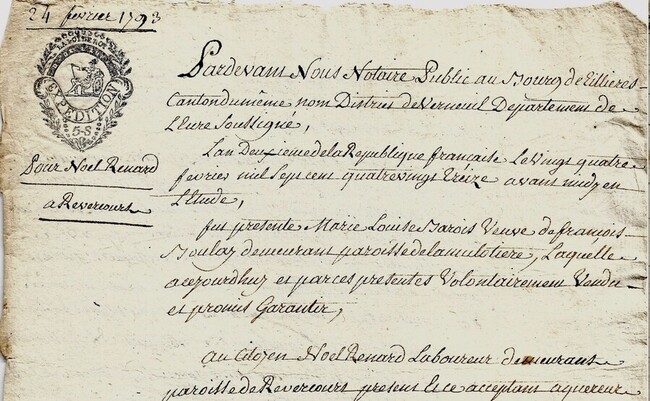 24 février 1793
LA LOI LE ROI
EXPEDITION
5-S
Pour Noel Renard
a Revercourt
Pardevant Nous Notaire Public au Bourg de Tillieres
Canton du même nom District de Verneuil Departement de
L'Eure Soussigné,
L'an Deuxieme de la Republique française Le Vingt quatre
fevrier mil Sept cent quatre vingt treize avant midy en
L'Etude,
fut presente Marie Louise Marois Veuve de françois
Boulay demeurant paroisse de la mulotiere, Laquelle
a cejourdhuy et par ces presentes Volontairement Vendu
et promis Garantir,
au Citoyen Noel Renard Laboureur demeurant
paroisse de Revercourt present Et ce acceptant aquereur